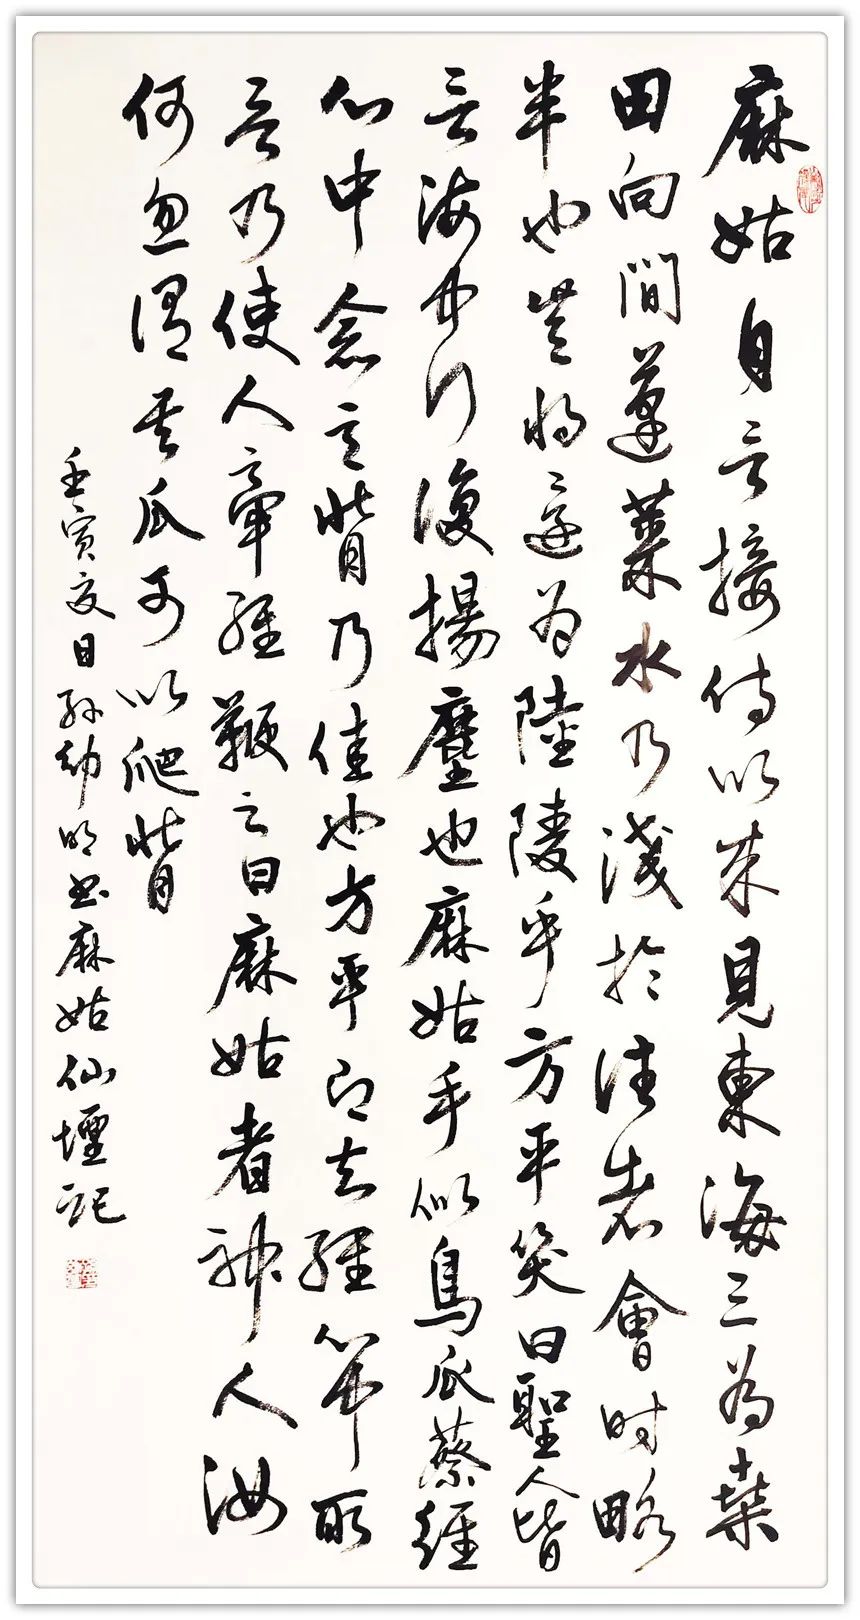 麻姑自言接侍以来見東海三為桑
田向間蓬萊水乃淺於往者會時略
半也豈將還為陸陵乎方平笑曰聖人皆
言海中行復揚塵也麻姑手似鳥爪蔡經
心中念言背乃佳也方平已知經心中所
言乃使人牽經鞭之曰麻姑者神人汝
何忽謂其爪可以爬背
壬寅夏日孫幼明書麻姑仙壇記